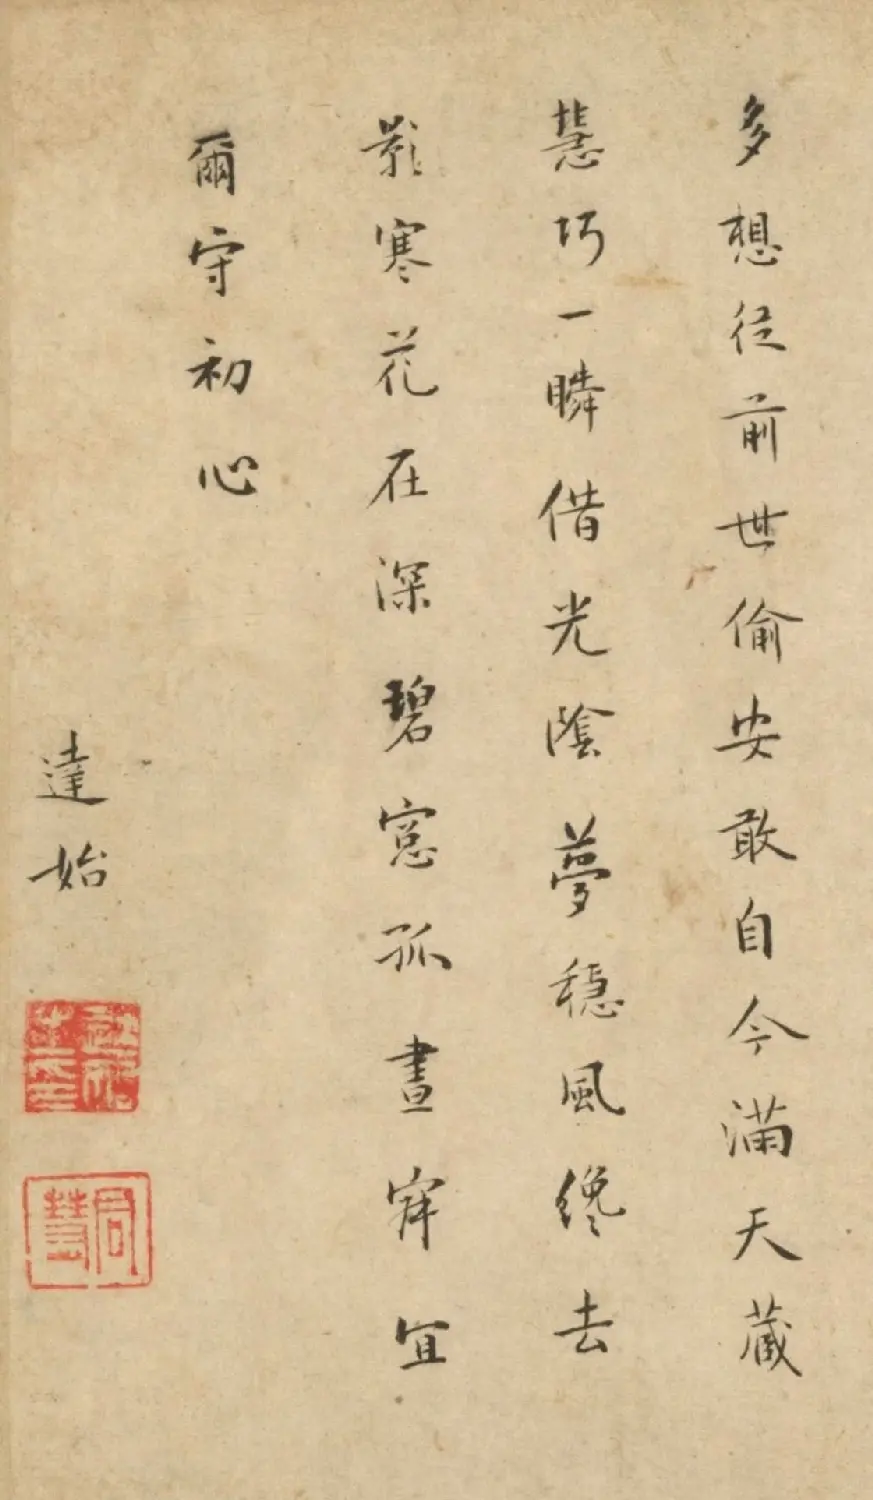 多想從前世偷安敢自今滿天藏
慧巧一瞬借光陰夢穩風纔去
影寒花在深碧窓孤晝寐宜
爾守初心
達始
同慧